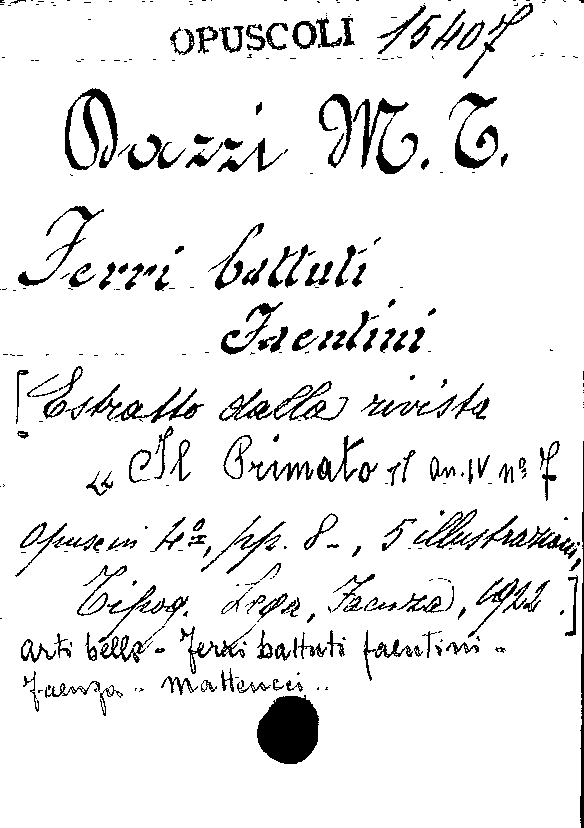 OPUSCOLI 15407
Dazzi M. T.
Ferri battuti
Faentini
[Estratto dalla rivista
"Il Primato" an. IV nº 7
opusc in 4º, pp. 8-, 5 illustrazioni,
Tipog. Lega, Faenza, 1922.]
arti belle - Ferri battuti faentini -
Faenza - Matteucci..